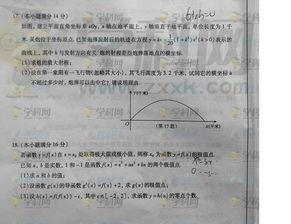 17.(本小题满分14分)
如图,建立平面直角坐标系xOy,x轴在地平面上,y轴垂直于地平面,单位长度为1千
米,某炮位于坐标原点.已知炮弹发射后的轨迹在方程y=kx-1/20(1+k²)x²(k>0)表示的
曲线上,其中k与发射方向有关.炮的射程是指炮弹落地点的横坐标.
(1)求炮的最大射程;
(2)设在第一象限有一飞行物(忽略其大小),其飞行高度为3.2千米,试问它的横坐标a
不超过多少时,炮弹可以击中它?请说明理由.
y(千米)
O
x(千米)
(第17题)
18.(本小题满分16分)
若函数y=f(x)在x=x₀处取得极大值或极小值,则称x₀为函数y=f(x)的极值点.
已知a,b是实数,1和-1是函数f(x)=x³+ax²+bx的两个极值点.
(1)求a和b的值;
(2)设函数g(x)的导函数g'(x)=f(x)+2,求g(x)的极值点;
(3)设h(x)=f(f(x))-c,其中c∈[-2,2],求函数y=h(x)的零点个数.